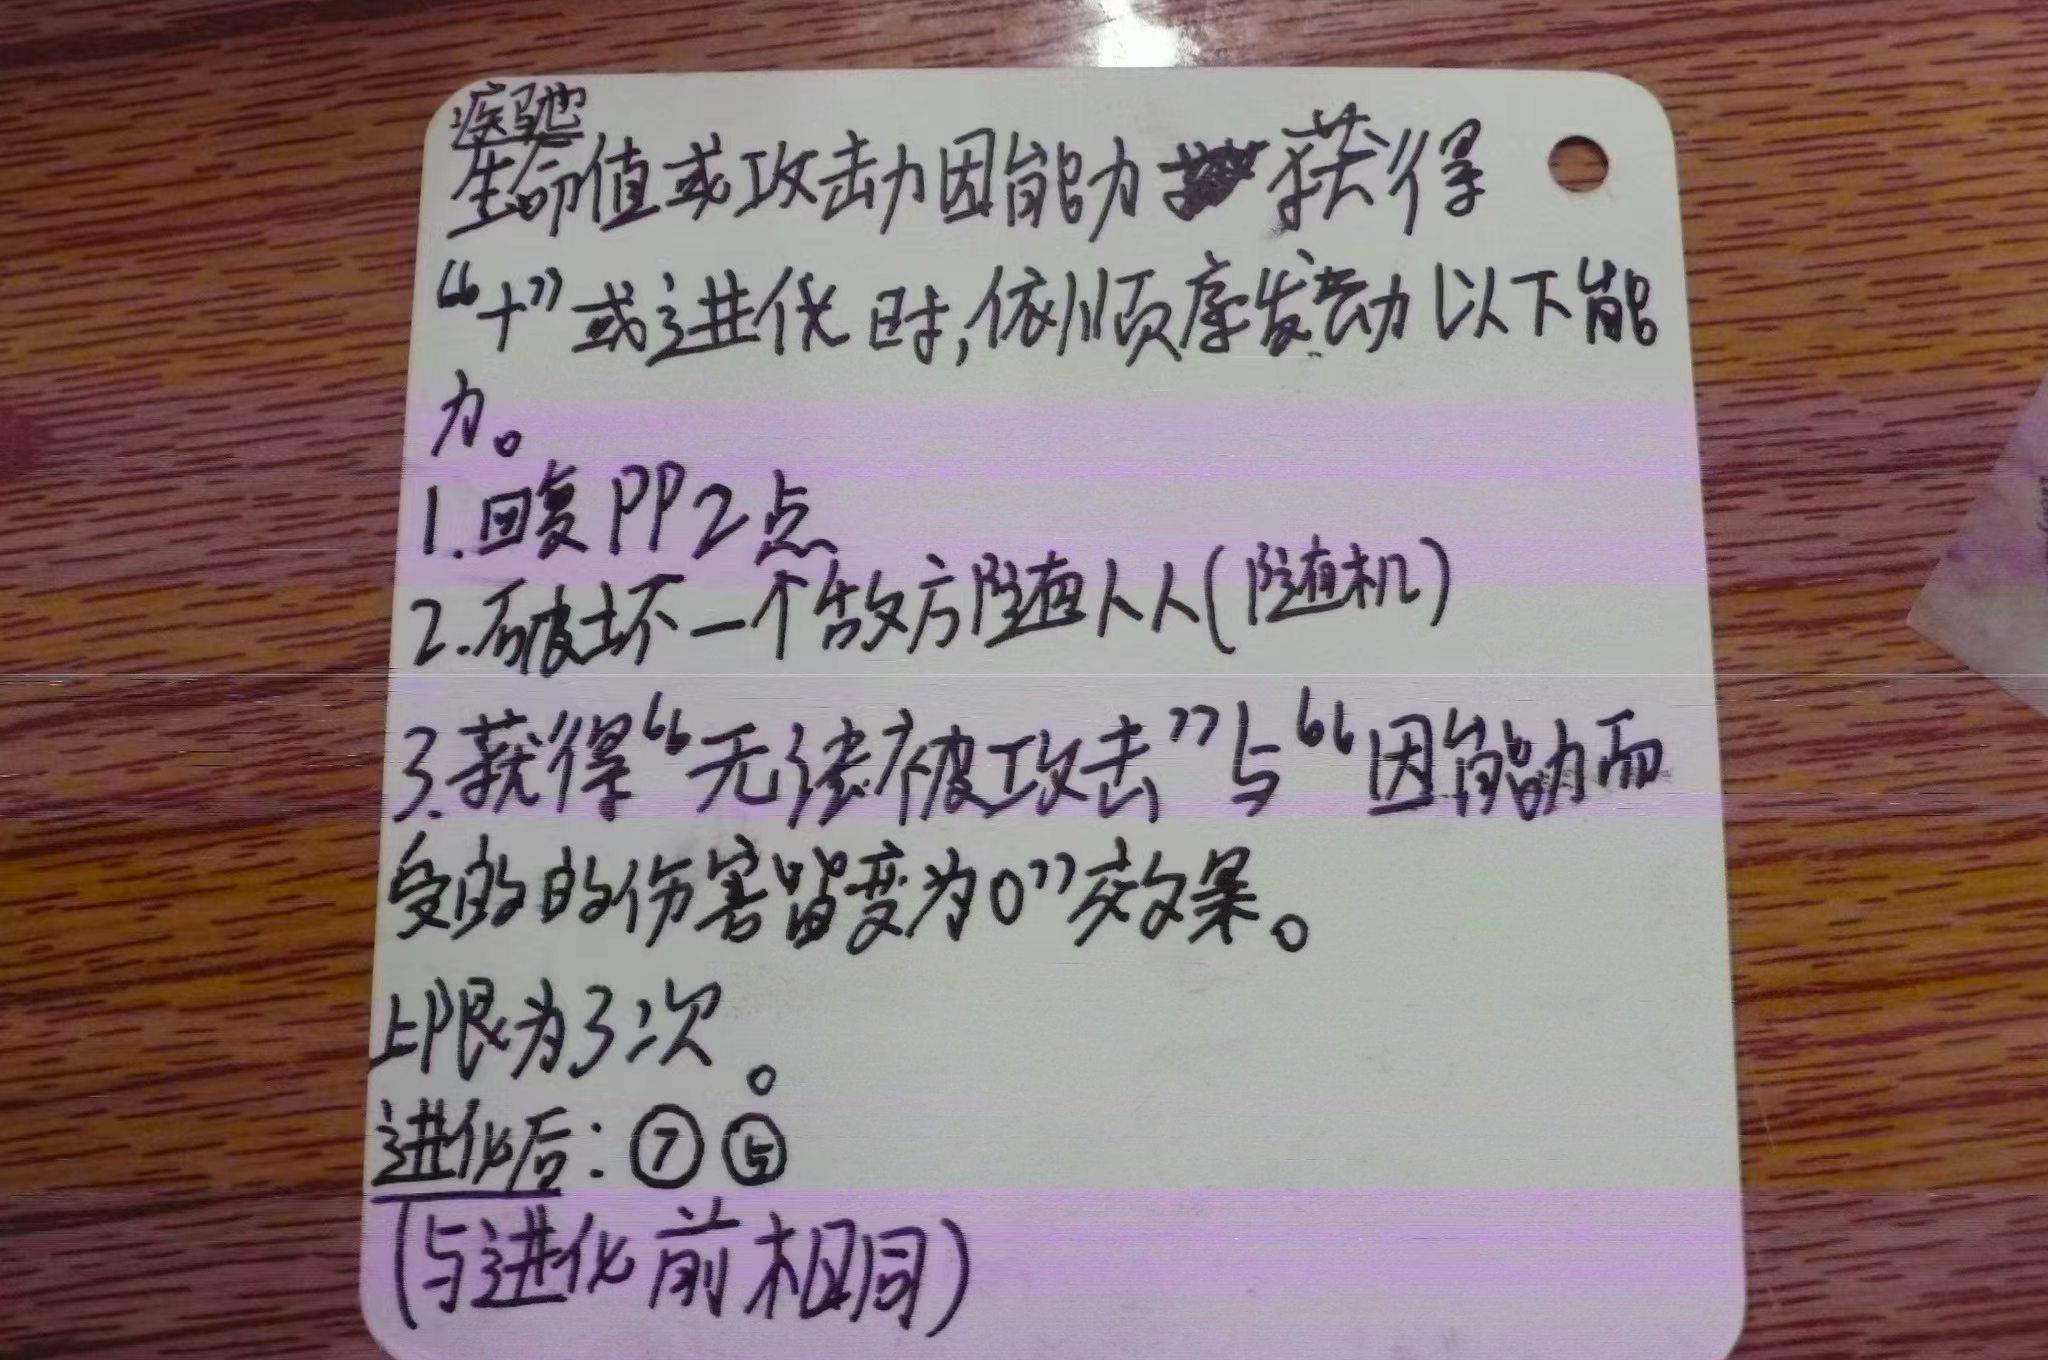 疾驰
生命值或攻击力因能力获得
“+”或进化时,依顺序发动以下能
力。
1.回复PP2点
2.破坏一个敌方随从(随机)
3.获得“无法被攻击”与“因能力而
受的的伤害皆变为0”效果。
上限为3次。
进化后:⑦⑤
(与进化前相同)